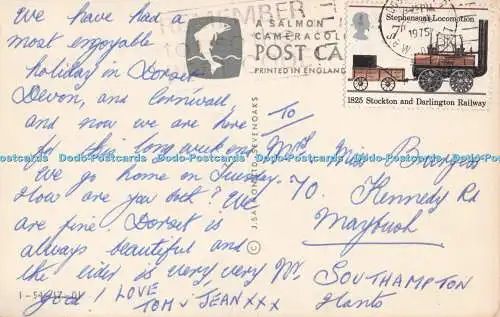 We have had a
most enjoyable
holiday in Dorset
Devon, and Cornwall
and now we are here
for this long week end
We go home on Tuesday.
How are you both? We
are fine. Dorset is
always beautiful and
the cider is very, very
good! LOVE
TOM & JEAN XXX
1-54-
REMEMBER
A SALMON
CAMERACOLOUR
POST CA
PRINTED IN ENGLAND
J. SALMON LTD SEVENOAKS ©
To
Miss
70. Kennedy Rd
Maybush
SOUTHAMPTON
Hants
Stephenson's Locomotion
7P
1975
1825 Stockton and Darlington Railway
Dodo-Postcards Dodo-Postcards Dodo-Postcards Dodo-Postcards Dodo-Postcards Dodo-Postcards Dodo-Postcards